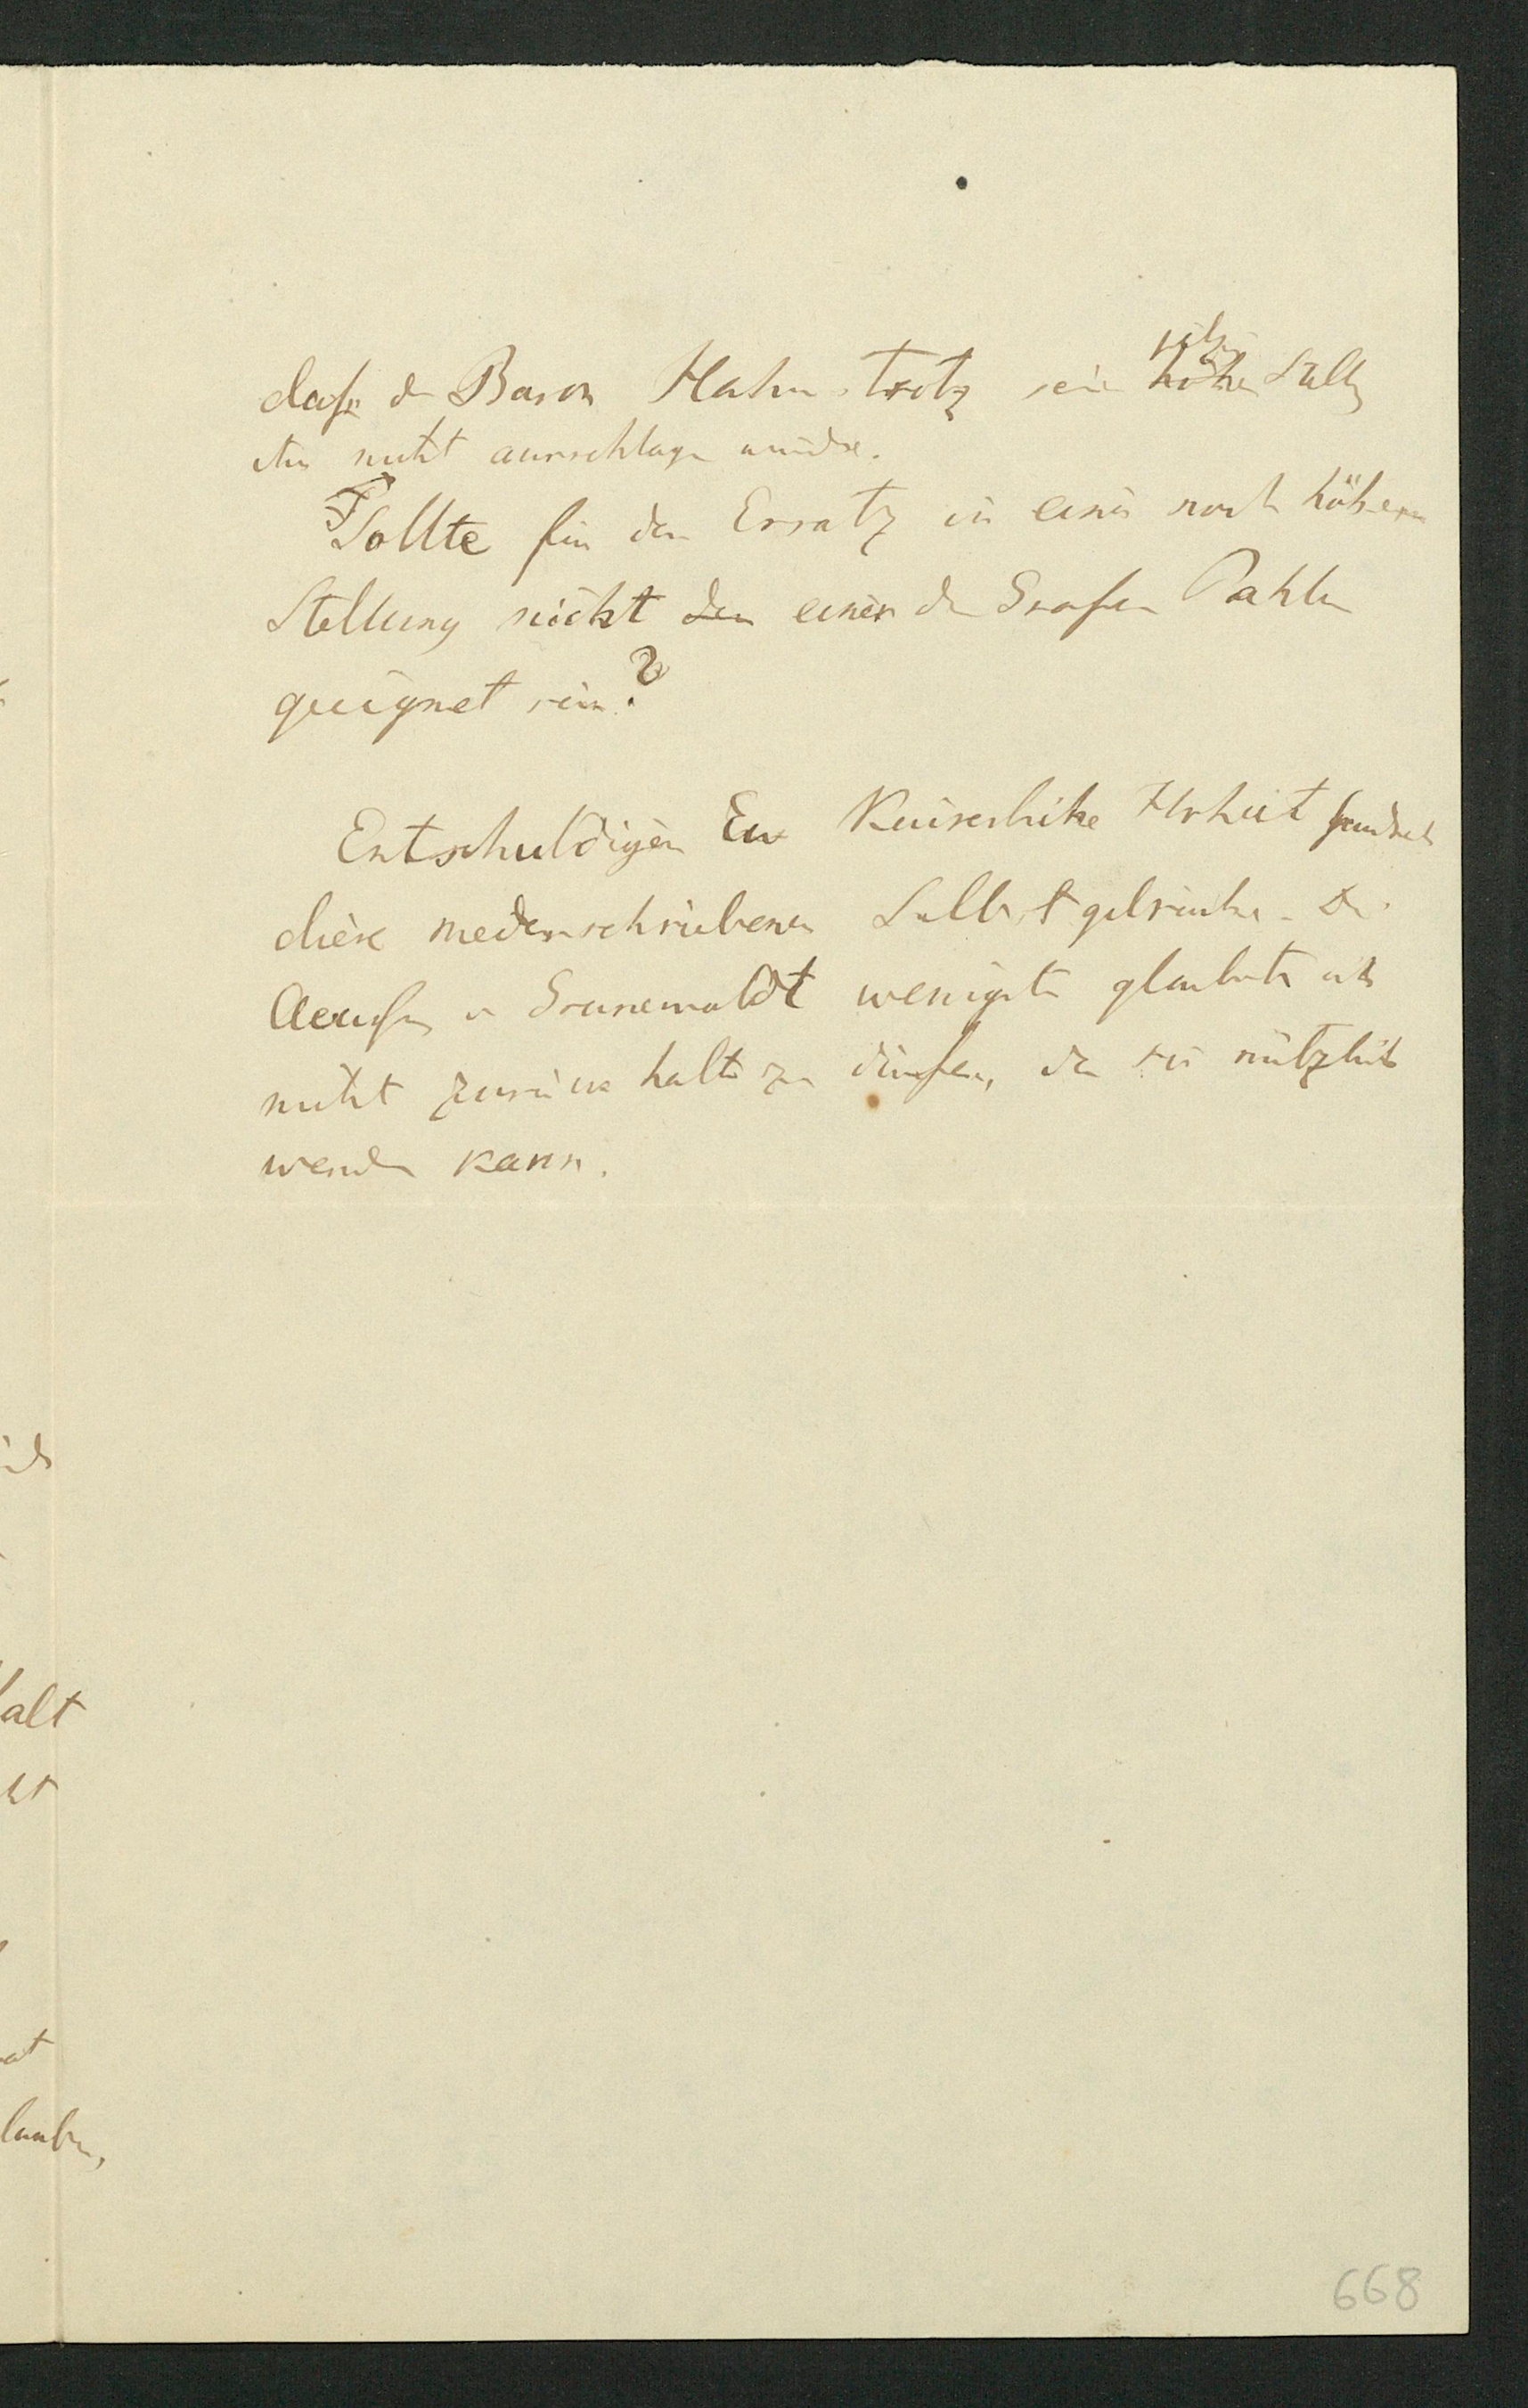 daß d Baron Hahn trotz sein höhe Stellg
ihn nicht ausschlagen würde.
Sollte für den Ersatz in einer noch höhern
Stellung nicht den einer der Grafen Pahlen
geeignet sein?
Entschuldigen Ew Kaiserliche Hoheit
diese niedergeschriebenen Selbstgespräche. Die
v Grunewaldt wenigstens glaubte ich
nicht zurück halten zu dürfen, da sie nützlich
werden kann.
ich
alt
ht
at
lauben,
668